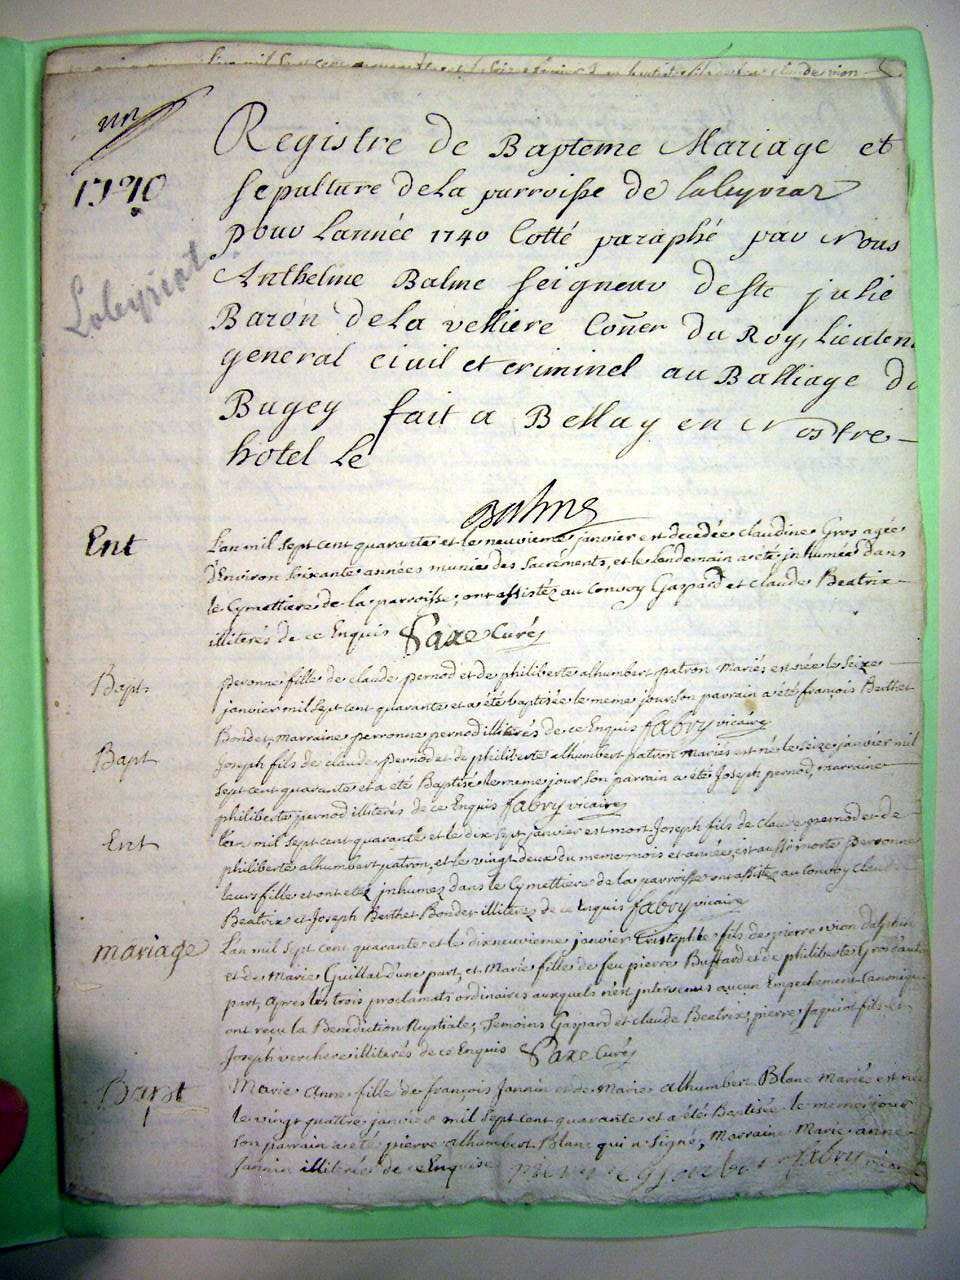 un
1740
Labeyriat
Registre de Bapteme Mariage et
sepulture de La parroisse de Labeyriat
pour Lannée 1740 Cotté paraphé par Nous
Anthelme Balme seigneur de ste julie
Baron de La velliere Coner du Roy, Lieuten
general civil et criminel au Balliage du
Bugey fait a Bellay en Nostre
hotel Le
Balme
Ent
Lan mil sept cent quarante et le neuvieme janvier est decedée claudine Gros agée
d'Environ soixante années munie des Sacrements, et le lendemain a eté jnhumée dans
le Cymettiere de la parroisse, ont assistéz au Convoy Gaspard et claude Beatrix
illiterés de ce Enquis Saxe Curé
Bapt
peronne fille de claude pernod et de philiberte alhumbert patron Mariés est née le seize
janvier mil sept cent quarante et a été baptisée le meme jour son parrain a été françois Berthet
Bondet, marraine peronne pernod illiterés de ce Enquis fabry vicaire
Bapt
Joseph fils de claude pernod et de philiberte alhumbert patron mariés est né le seize janvier mil
sept cent quarante et a été Baptisé le meme jour son parrain a été Joseph pernod, marraine
philiberte pernod illiterés de ce Enquis fabry vicaire
Ent
Lan mil sept cent quarante et le dix sept janvier est mort Joseph fils de claude pernod et de
philiberte alhumbert patron, et le vingt deux du meme mois et année, est aussi morte peronne
leur fille et ont eté jnhumez dans le Cymettiere de la parroisse ont assistéz au Convoy Claude
Beatrix et Joseph Berthet Bondet illiterez de ce Enquis fabry vicaire
mariage
Lan mil sept cent quarante et le dixneuvieme janvier Cristophle fils de pierre vion dalphin
et de Marie Guillat d'une part, et Marie fille de feu pierre Buffard et de philiberte Gros d'autre
part, apres les trois proclamats ordinaires auxquels n'est intervenus aucun Empechement Canonique
ont reçu la Benediction Nuptiale, Temoins Gaspard et claude Beatrix, pierre Jaquin fils
Joseph verchere illiterés de ce Enquis Saxe Curé
Bapt
Marie Anne fille de françois Jannin et de Marie alhumbert Blanc mariés est née
le vingt quattre janvier mil sept cent quarante et a été Baptisée le meme jour
son parrain a été pierre alhumbert Blanc qui a signé, Marraine Marie anne
Jannin illiterés de ce Enquise fabry